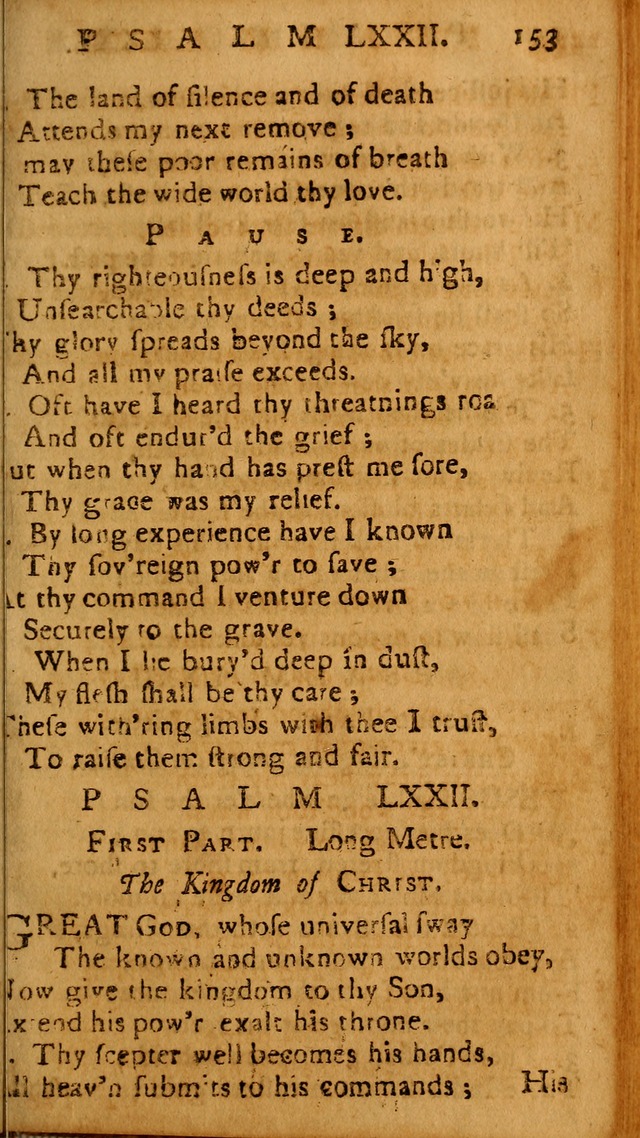 PSALM LXXII. 153
The land of ſilence and of death
Attends my next remove ;
may theſe poor remains of breath
Teach the wide world thy love.
PAUSE.
Thy righteouſneſs is deep and high,
Unſearchable thy deeds ;
hy glory ſpreads beyond the ſky,
And all my praiſe exceeds.
Oft have I heard thy threatnings roa
And oft endur'd the grief ;
ut when thy hand has preſt me ſore,
Thy grace was my relief.
. By long experience have I known
Thy ſov'reign pow'r to ſave ;
t thy command I venture down
Securely to the grave.
When I lie bury'd deep in duſt,
My fleſh ſhall be thy care ;
heſe with'ring limbs with thee I truſt,
To raiſe them ſtrong and fair.
PSALM LXXII.
FIRST PART. Long Metre.
The Kingdom of CHRIST.
GREAT GOD, whoſe univerſal ſway
The known and unknown worlds obey,
Now give the kingdom to thy Son,
xtend his pow'r exalt his throne.
. Thy ſcepter well becomes his hands,
ll heav'n ſubmits to his commands ;
His